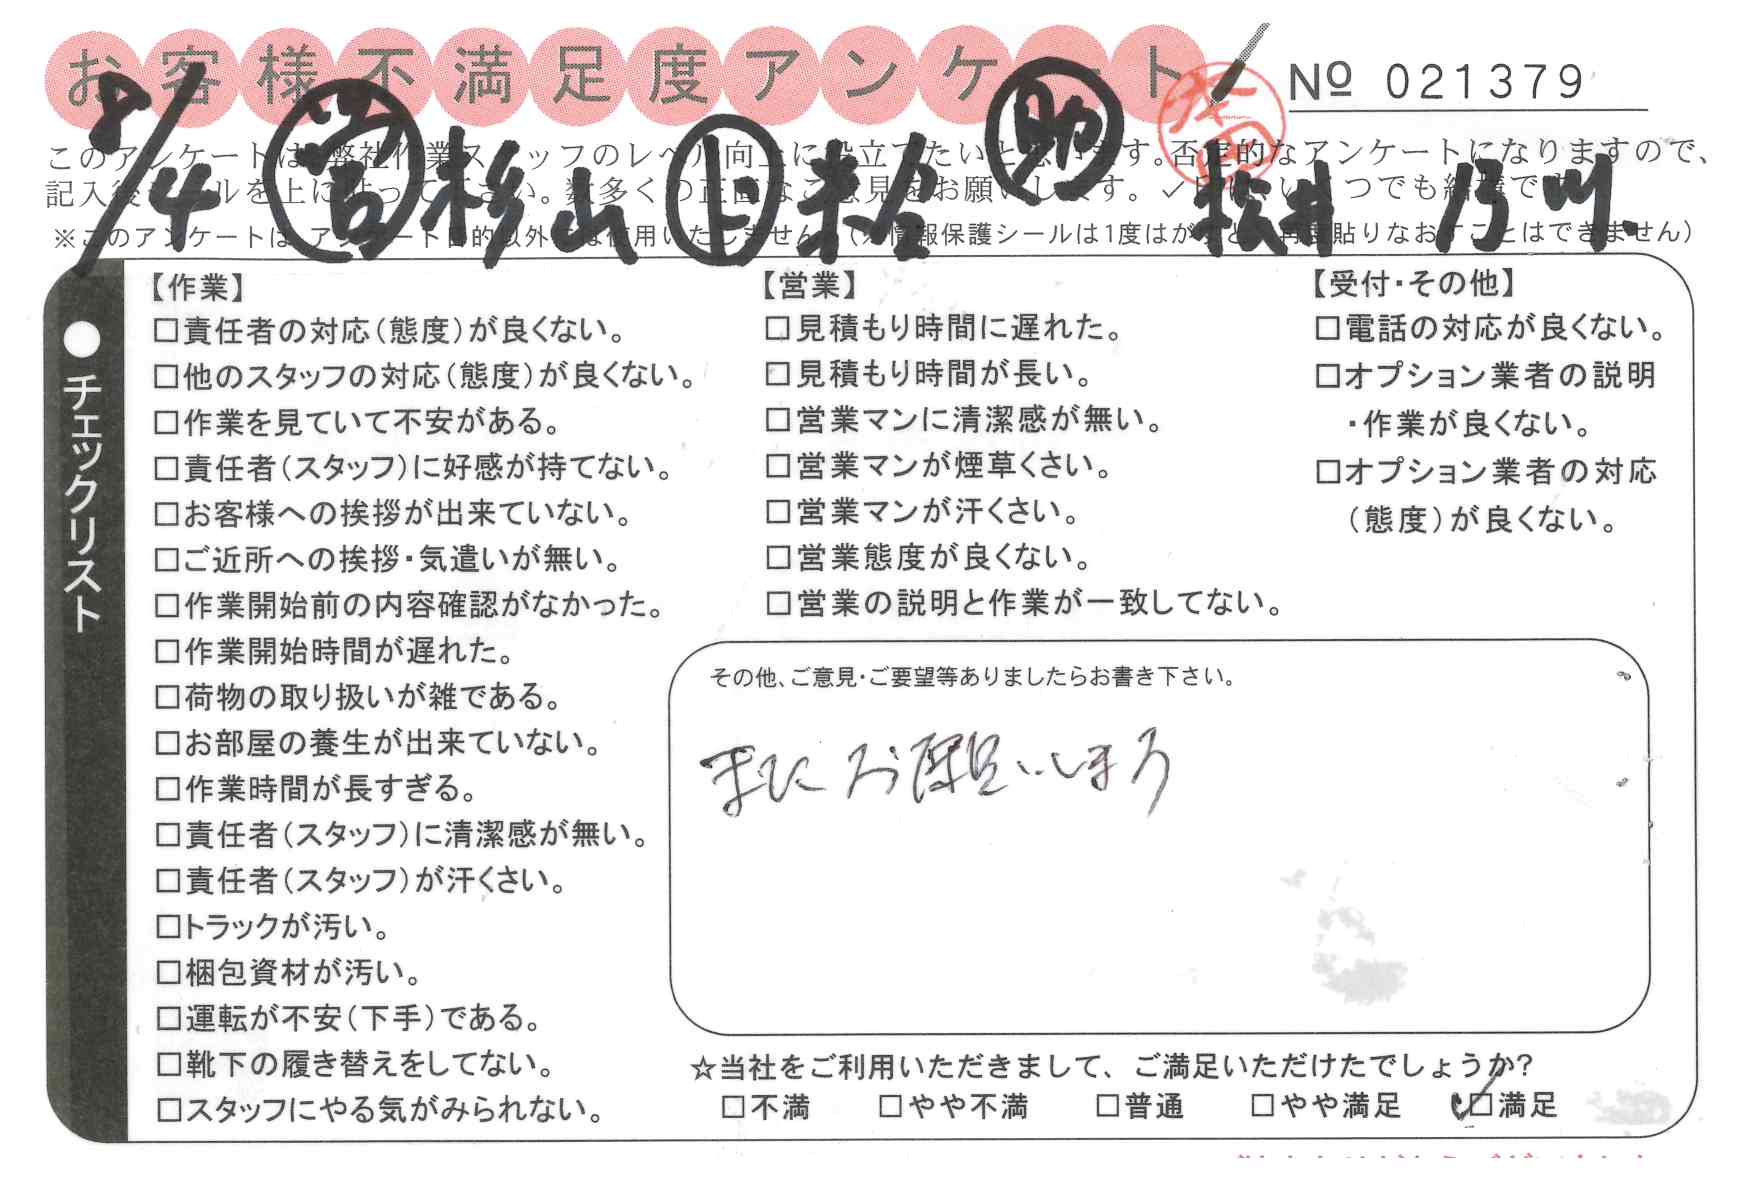 お客様不満足度アンケート
№ 021379
このアンケートは、弊社作業スタッフのレベル向上に役立てたいと思います。否定的なアンケートになりますので、
記入後シールを上に貼って下さい。数多くの正直なご意見をお願いします。✓印は、いくつでも結構です。
※このアンケートは、アンケート目的以外には使用いたしません。(※情報保護シールは1度はがすと、再度貼りなおすことはできません)
8/4 営 杉山 上 末 助 松井 乃川
チェックリスト
【作業】
□責任者の対応(態度)が良くない。
□他のスタッフの対応(態度)が良くない。
□作業を見ていて不安がある。
□責任者(スタッフ)に好感が持てない。
□お客様への挨拶が出来ていない。
□ご近所への挨拶・気遣いが無い。
□作業開始前の内容確認がなかった。
□作業開始時間が遅れた。
□荷物の取り扱いが雑である。
□お部屋の養生が出来ていない。
□作業時間が長すぎる。
□責任者(スタッフ)に清潔感が無い。
□責任者(スタッフ)が汗くさい。
□トラックが汚い。
□梱包資材が汚い。
□運転が不安(下手)である。
□靴下の履き替えをしてない。
□スタッフにやる気がみられない。
【営業】
□見積もり時間に遅れた。
□見積もり時間が長い。
□営業マンに清潔感が無い。
□営業マンが煙草くさい。
□営業マンが汗くさい。
□営業態度が良くない。
□営業の説明と作業が一致してない。
【受付・その他】
□電話の対応が良くない。
□オプション業者の説明
・作業が良くない。
□オプション業者の対応
(態度)が良くない。
その他、ご意見・ご要望等ありましたらお書き下さい。
またお願いします
☆当社をご利用いただきまして、ご満足いただけたでしょうか?
□不満 □やや不満 □普通 □やや満足 ✓□満足